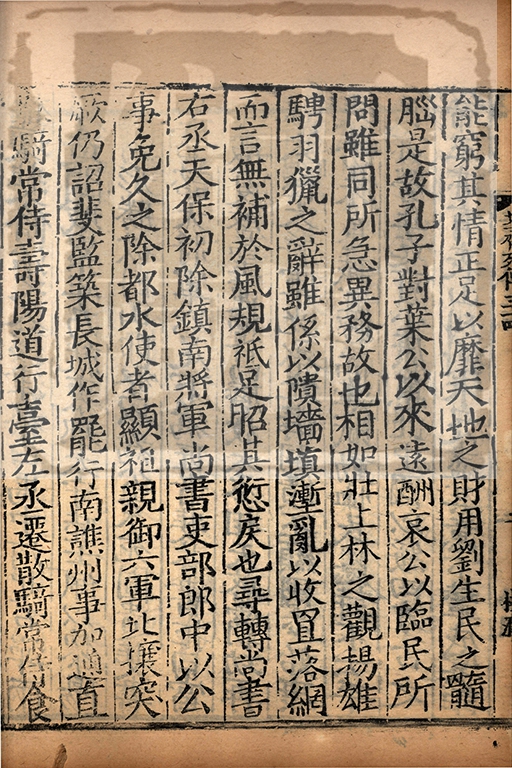 能窮其情正足以靡天地之財用劉生民之髓
腦是故孔子對葉公以來遠酬哀公以臨民所
問雖同所急異務故也相如壯上林之觀揚雄
騁羽獵之辭雖係以隤墻填漸亂以收罝落網
而言無補於風規祇足昭其愆戾也尋轉尚書
右丞天保初除鎮南將軍尚書吏部郎中以公
事免久之除都水使者顯祖親御六軍北攘突
厥仍詔斐監築長城作罷行南譙州事加通直
騎常侍壽陽道行臺左丞遷散騎常侍食